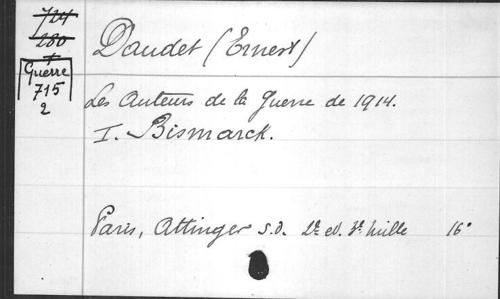 724
280
+
Guerre
715
2
Daudet (Ernest)
Les Auteurs de la Guerre de 1914.
I. Bismarck.
Paris, Attinger s.d. 2e éd. 3e mille 16°